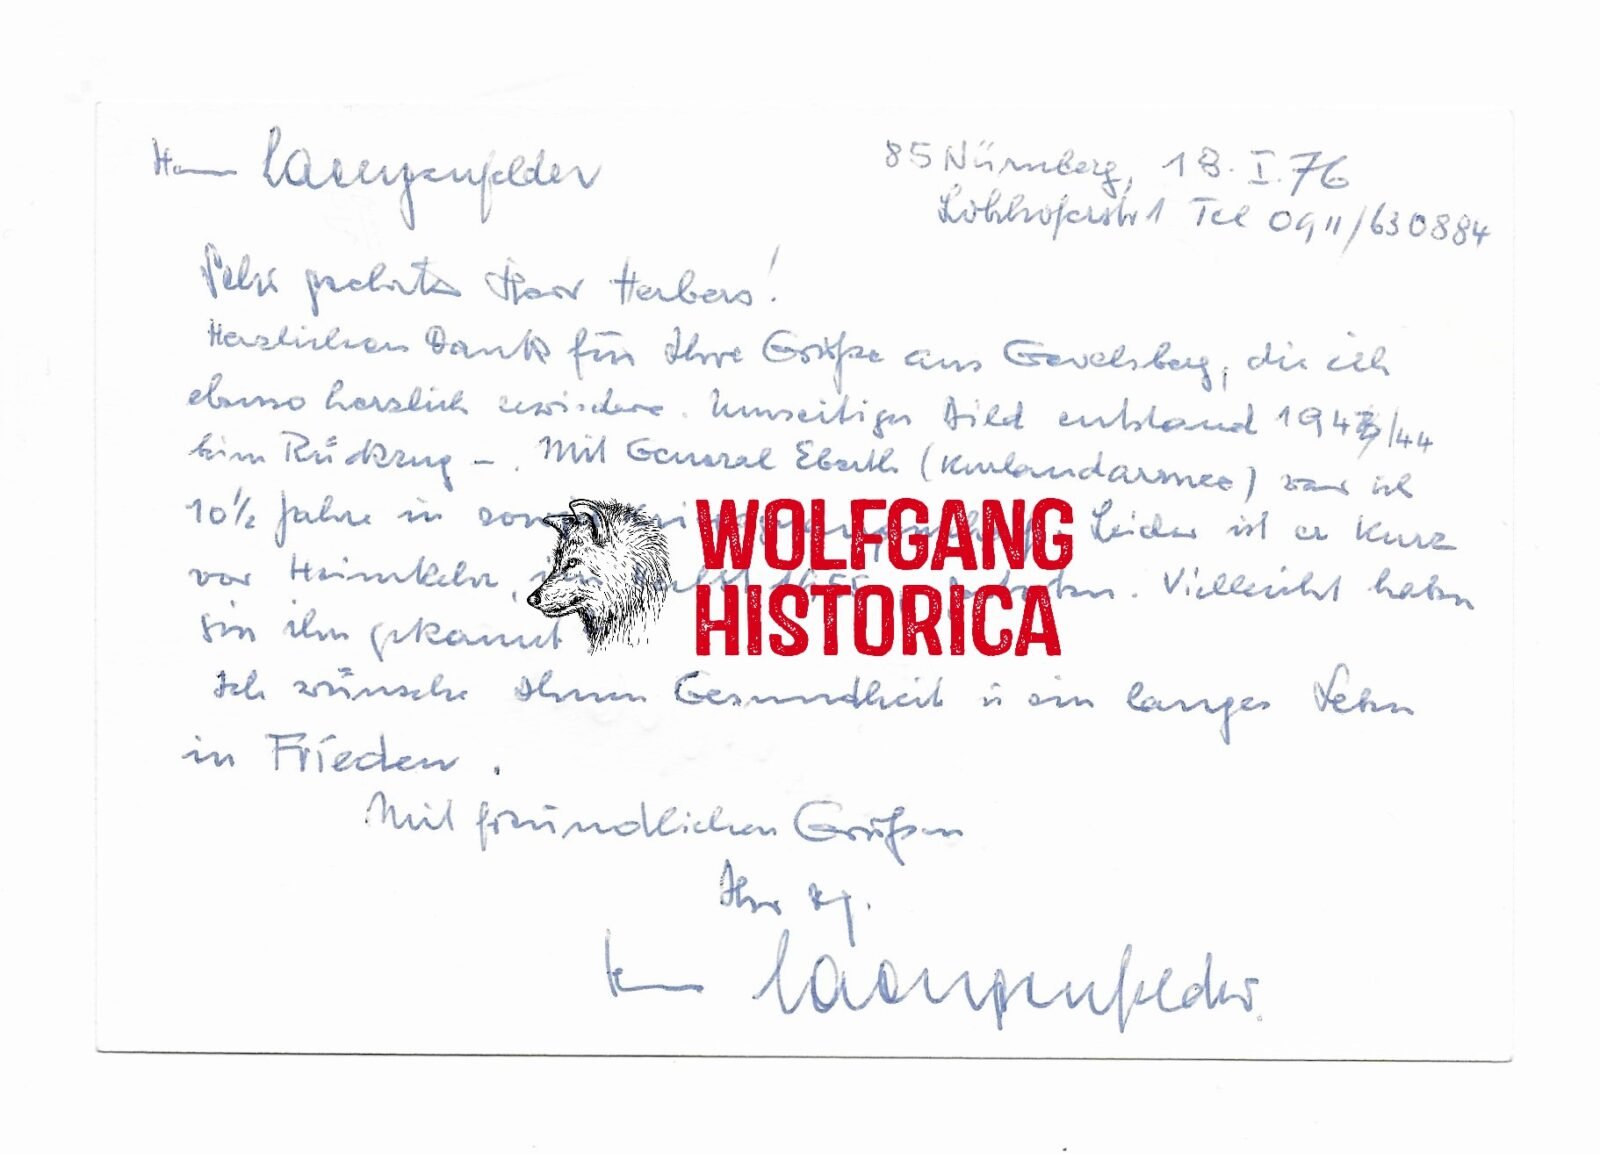 Laengenfelder
85 Nürnberg, 18.I.76
Tel 0911/630884
Sehr geehrter Herr Herbers!
Herzlichen Dank für Ihre Grüße aus Gevelsberg, die ich
ebenso herzlich erwidere. Umseitiges Bild entstand 1943/44
beim Rückzug –. Mit General (Kurlandarmee) war ich
10½ Jahre in Leider ist er kurz
vor Heimkehr, Vielleicht haben
Sie ihn gekannt
WOLFGANG
HISTORICA
Ich wünsche Ihnen Gesundheit u ein langes Leben
in Frieden.
Mit freundlichen Grüßen
Ihr
Laengenfelder.